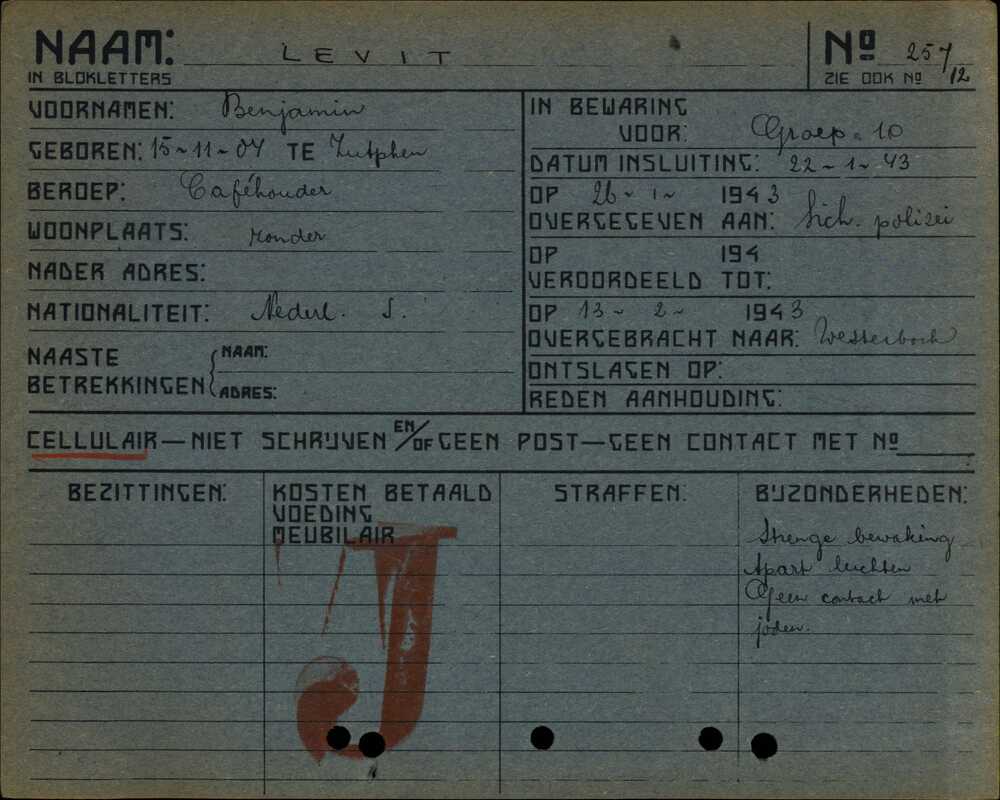 NAAM: LEVIT
IN BLOKLETTERS
No 257/12
ZIE OOK No
VOORNAMEN: Benjamin
GEBOREN: 15-11-07 TE Zutphen
BEROEP: Caféhouder
WOONPLAATS: zonder
NADER ADRES:
NATIONALITEIT: Nederl. J.
NAASTE BETREKKINGEN
NAAM:
ADRES:
IN BEWARING
VOOR: Groep 10
DATUM INSLUITING: 22-1-43
OP 26-1- 1943
OVERGEGEVEN AAN: Sich. polizei
OP 194
VEROORDEELD TOT:
OP 13-2-1943
OVERGEBRACHT NAAR: Westerbork
ONTSLAGEN OP:
REDEN AANHOUDING:
CELLULAIR—NIET SCHRIJVEN EN/OF GEEN POST—GEEN CONTACT MET No
BEZITTINGEN:
KOSTEN BETAALD
VOEDING
MEUBILAIR
J
STRAFFEN:
BIJZONDERHEDEN:
Strenge bewaking
Apart luchten
Geen contact met
joden.